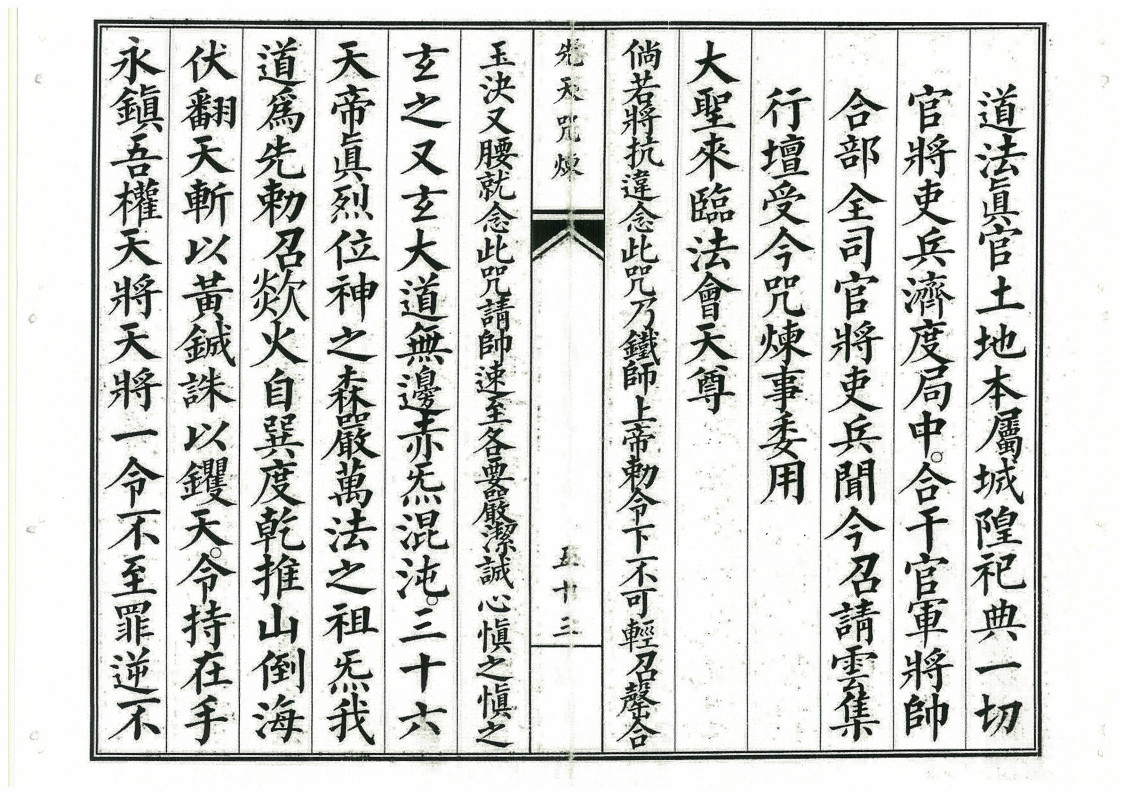 道法眞官土地本屬城隍祀典一切
官將吏兵濟度局中。合干官軍將帥
合部全司官將吏兵聞今召請雲集
行壇受今咒煉事委用
大聖來臨法會天尊
倘若將抗違念此咒乃鐵師上帝勅令下一不可輕召罄合
先天咒煉
五十三
玉決又腰就念此咒請師速至各要嚴潔誠心慎之慎之
玄之又玄大道無邊赤炁混沌。三十六
天帝眞烈位神之森嚴萬法之祖炁我
道爲先勅召欻火自巽度乾推山倒海
伏翻天斬以黃鉞誅以钁天。令持在手
永鎭吾權天將天將一令不至罪逆不